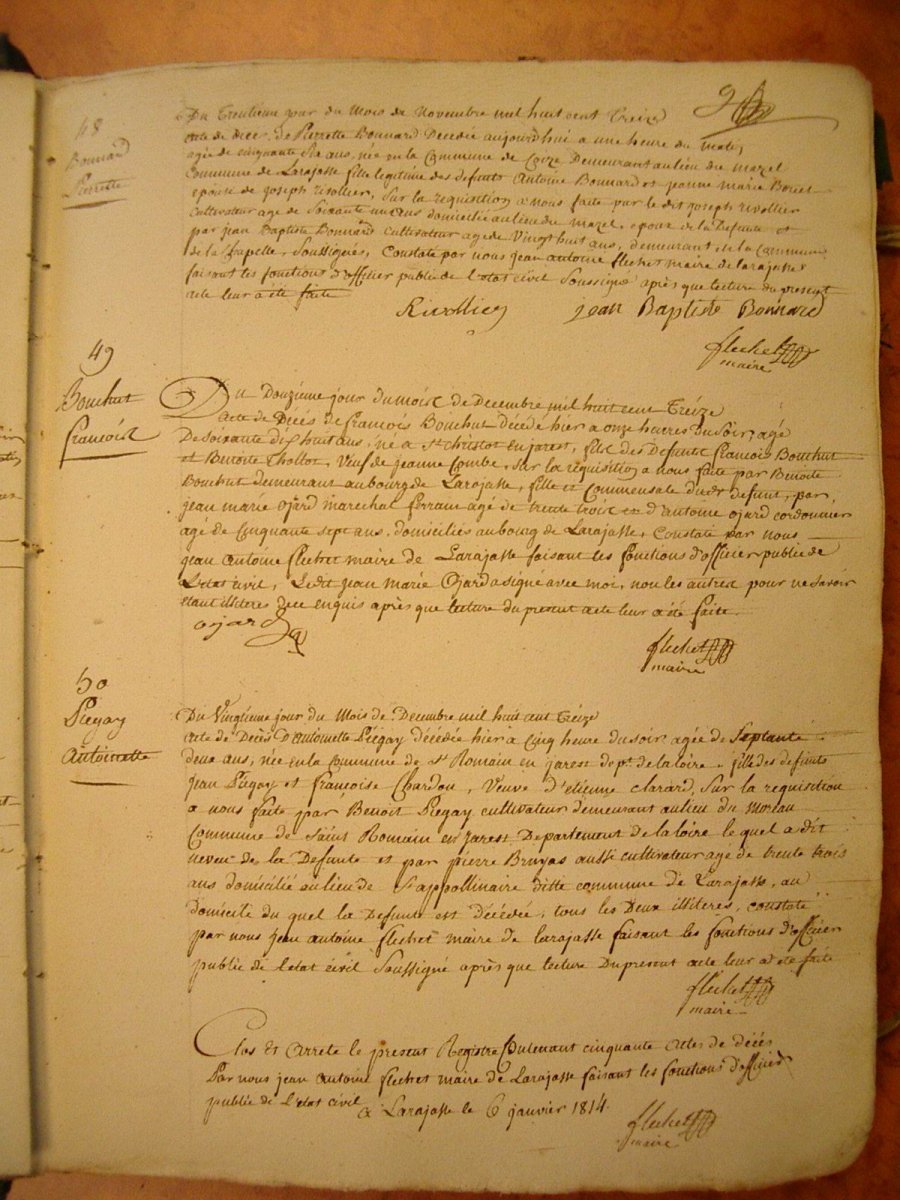 9
48
Bonnard
Pierrette
Du Trentieme jour du Mois de Novembre mil huit cent Treize
acte de décés de Pierrette Bonnard Decedée aujourd'hui a une heure du matin
agée de cinquante six ans, née en la Commune de Coize Demeurant au lieu du mazel
Commune de Larajasse fille legitime des defunts Antoine Bonnard et jeanne Marie
epouse de joseph Rivollier, Sur la requisition a nous faite par le dit joseph rivollier
cultivateur age de Soixante un ans domicilié au lieu du Mazel, epoux de la Defunte et
par jean Baptiste Bonnard cultivateur age de Vingt huit ans, demeurant en la Commune
de la Chapelle, Soussignés, Constaté par nous jean antoine flechet maire de larajasse
faisant les fonctions d'officier public de l'etat civil Soussigné après que lecture du présent
acte leur a été faite
Rivollier jean Baptiste Bonnard
flechet
maire
49
Bouchut
françois
Du Douzième jour du mois de Decembre mil huit cent Treize
acte de Décés de françois Bouchut décedé hier a onze heures du Soir, agé
De soixante dix huit ans, né a St christot en jarest, fils des Defunts francois Bouchut
et Benoite thollot, Veuf de jeanne Combe, Sur la réquisition a nous faite par Benoite
Bouchut demeurant au bourg de Larajasse, fille et Commensale dudt defunt, par
jean marie Ojard marechal ferrant agé de trente trois et d'antoine ojard cordonnier
agé de Cinquante sept ans, domiciliés au bourg de Larajasse, Constaté par nous
jean Antoine flechet maire de Larajasse faisant les fonctions d'officier public de
L'etat civil, Ledit jean marie Ojard a signé avec moi, non les autres pour ne Savoir
étant illiteres de ce enquis après que lecture du present acte leur a été faite.
ojard
flechet
maire
50
Piegay
Antoinette
Du Vingtieme jour du Mois de Decembre mil huit cent Treize
acte de Décès D'Antoinette Piégay décedée hier a Cinq heure du soir agée de Septante
deux ans, née en la Commune de St Romain en jarest dept. de la loire, fille des defunts
jean Piegay et françoise Chardon, Veuve d'etienne clarard, Sur la requisition
a nous faite par Benoit Piegay cultivateur demeurant au lieu du Moreau
Commune de Saint Romain en jarest Departement de la loire le quel a dit
neveu de la Defunte et par pierre Bruyas aussi cultivateur age de trente trois
ans domicilié au lieu de St appollinaire ditte commune de Larajasse, au
domicile du quel la Defunte est décédée, tous les Deux illiteres, constaté
par nous jean antoine flechet maire de larajasse faisant les fonctions d'officier
public de l'etat civil Soussigné après que lecture Du present acte leur a été faite
flechet
maire
Clos et arreté le present Registre Contenant cinquante actes de décés
Par nous jean antoine flechet maire de Larajasse faisant les fonctions d'officier
public de L'etat civil
a Larajasse le 6 janvier 1814.
flechet
maire